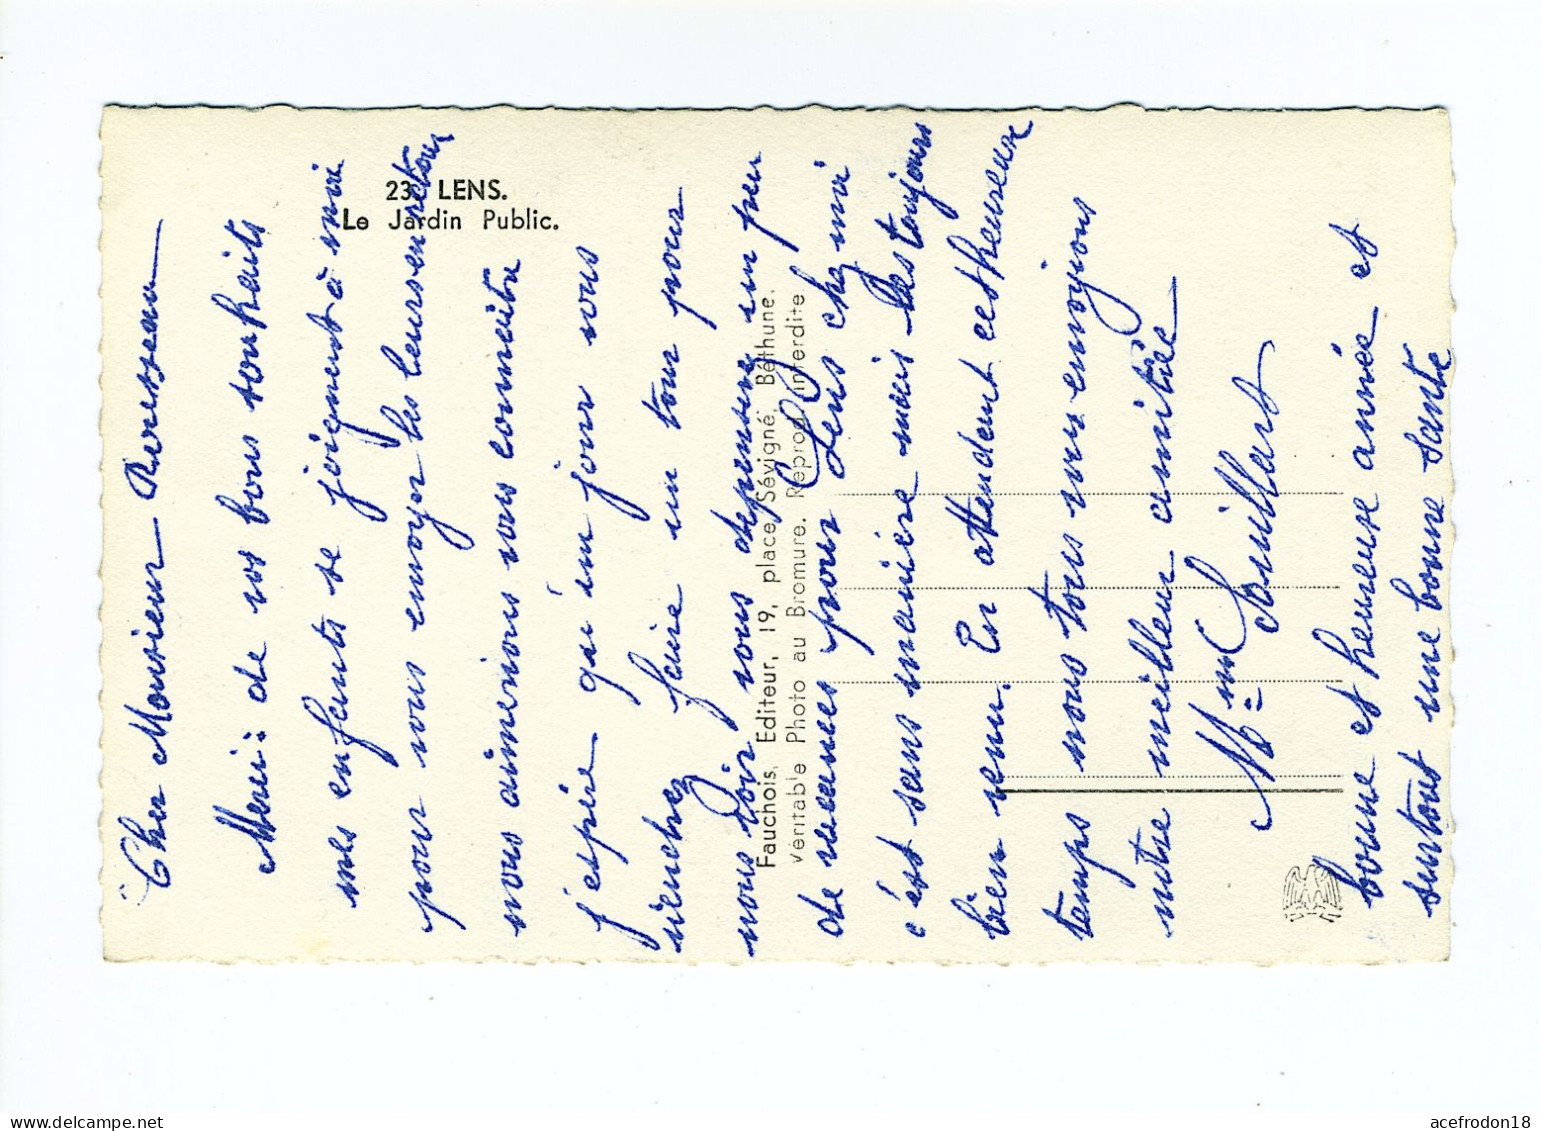 23. LENS.
Le Jardin Public.
Fauchois, Editeur, 19, place Sévigné, Béthune.
Véritable Photo au Bromure. Reprod. interdite
Cher Monsieur Rousseau
Merci de vos bons souhaits
mes enfants se joignent à moi
pour vous envoyer les leurs en retour
nous aimerions vous connaitre
j'espère qu'un jour vous
viendrez faire un tour pour
nous voir vous dépenserez un peu
de pour Lens chez moi
c'est sans manière mais les toujours
bien venu. En attendant cest heureux
temps nous tous vous envoyons
notre meilleur amitiée
Mme Souillart
bonne et heureuse année et
surtout une bonne santé
acefrodon18